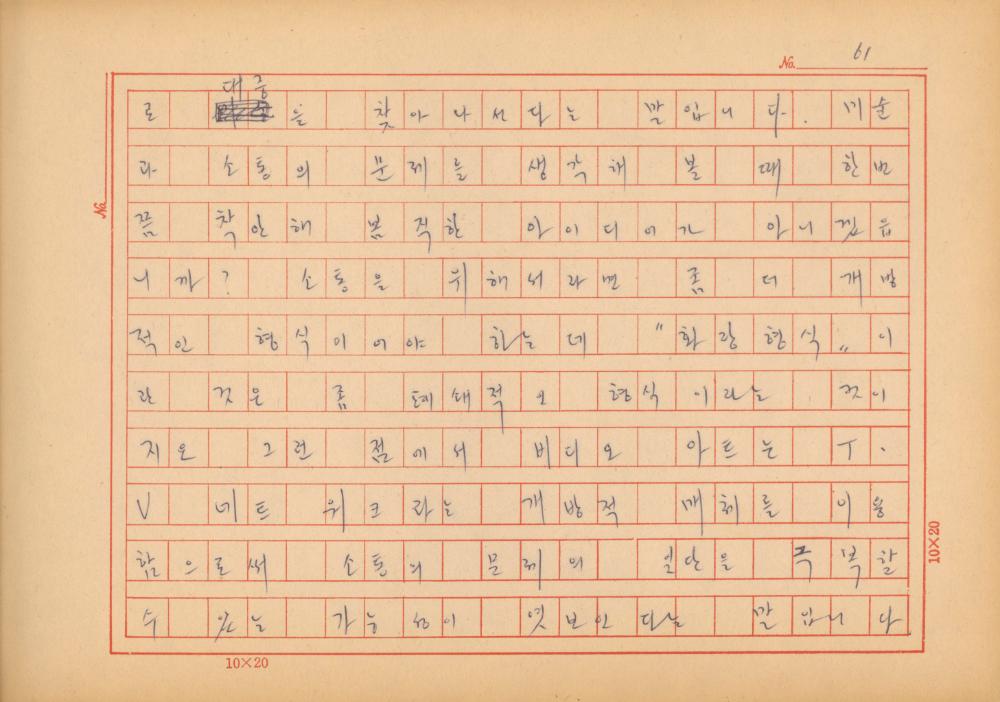 No. 61
대중
로 을 찾아나선다는 말입니다. 미술
과 소통의 문제를 생각해 볼 때 한번
쯤 착안해 봄직한 아이디어가 아니겠읍
니까? 소통을 위해서라면 좀 더 개방
적인 형식이어야 하는데 "화랑형식" 이
란 것은 좀 폐쇄적인 형식이라는 것이
지요 그런 점에서 비디오 아트는 T.
V 네트워크라는 개방적 매체를 이용
함으로써 소통의 문제의 일단을 극복할
수 있는 가능성이 엿보인다는 말입니다
No.
10×20
10×20